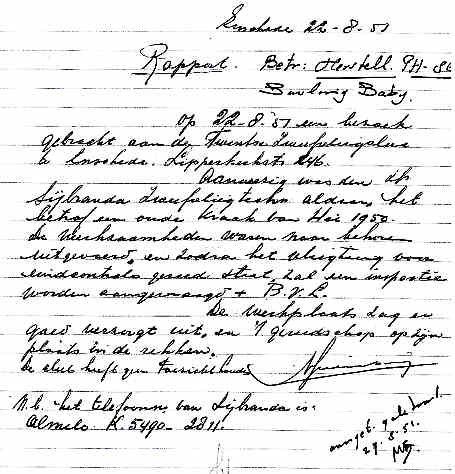 Enschede 22-8-51
Rapport. Betr: Herstell. PH-
Baby.
Op 22-8-'51 een bezoek
gebracht aan de Twentse Zweefvliegclub
te Enschede. Lipperkerkstr 246.
Aanwezig was den
Sijbranda Zweefvliegtechn aldaar, het
betrof een oude kraak van Mei 1950.
De werkzaamheden waren naar behoren
uitgevoerd, en zodra het vliegtuig voor
eindcontrole gereed staat, zal een inspectie
worden aangevraagd + B.V.L.
De werkplaats zag er
goed verzorgt uit, en 't gereedschap op zijn
plaats in de rekken.
De club heeft geen Toezichthouder
N.b. het telefoonnr. van Sijbranda is:
Almelo K. 5490-2811.
29.8.51.